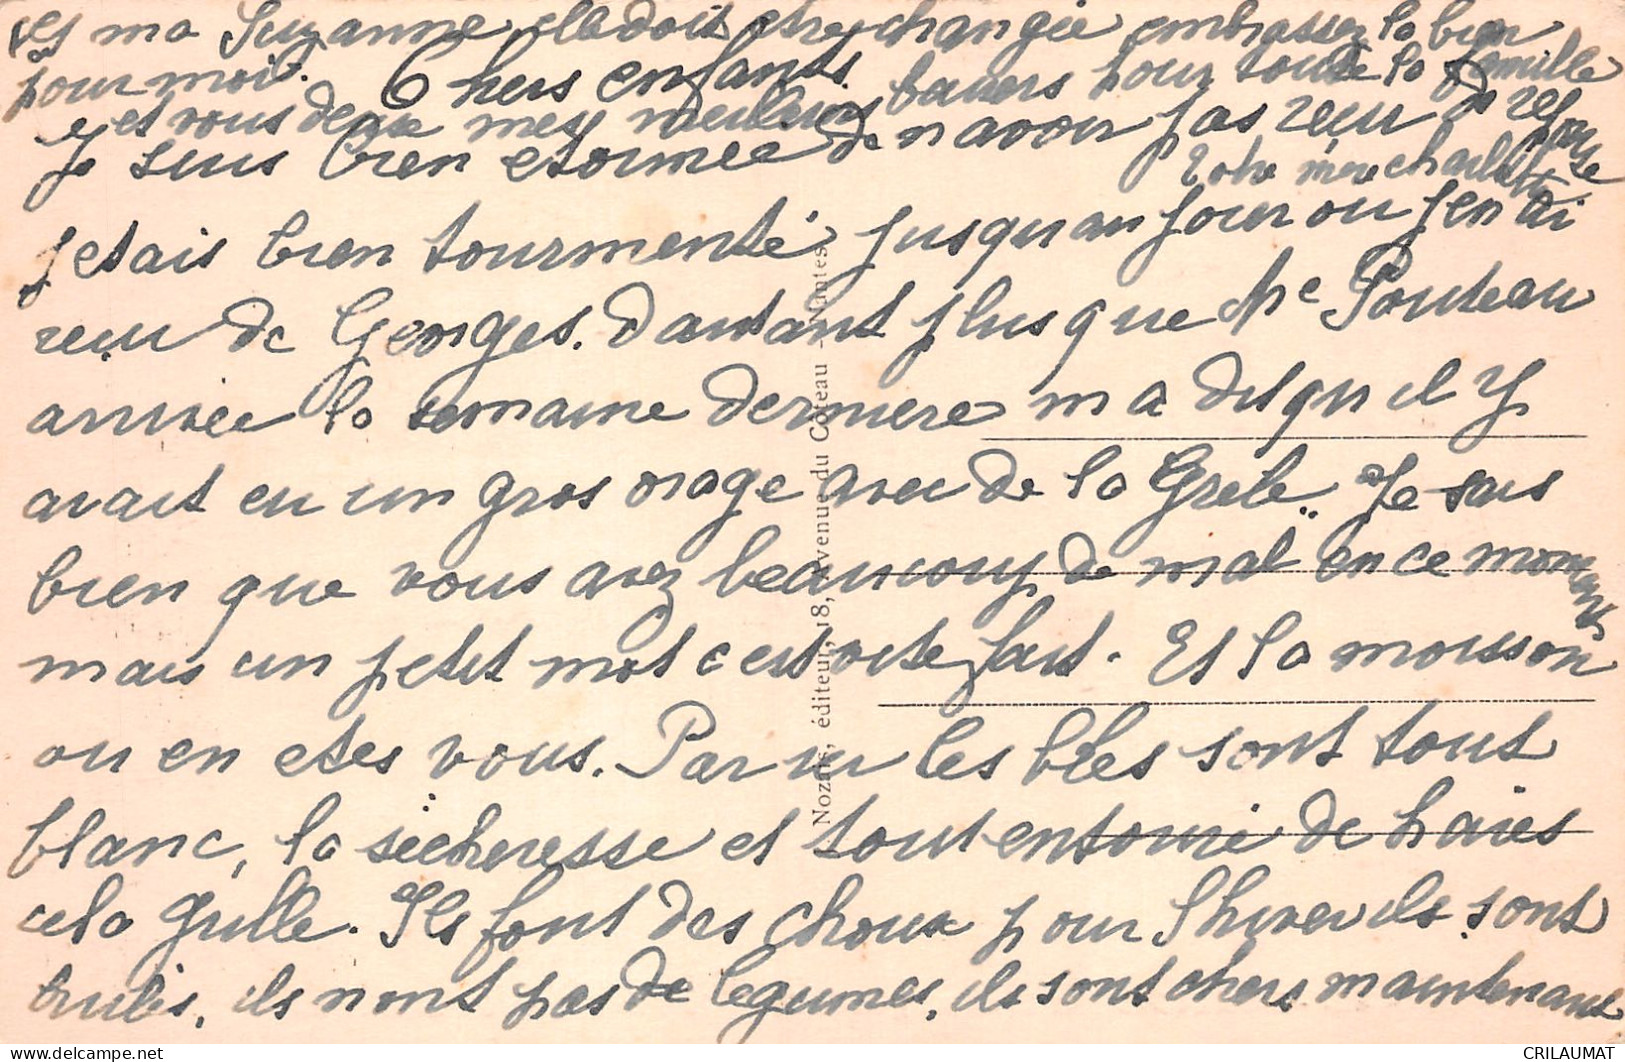 ma Suzanne elle doit etre changée embrassez la bien
pour moi. Chers enfants.
et vous deux mes meilleurs baisers pour toute la famille
Je suis bien etonnee de n avoir pas reçu de reponse
Votre mère charlotte
J etais bien tourmenté jusqu au jour ou j en ai
recu de Georges. Dautant plus que Me Pouteau
arrivée la semaine derniere m a dis qu il y
avait eu un gros orage avec de la Grele. Je sais
bien que vous avez beaucoup de mal en ce moment
mais un petit mot c est vite fait. Et la moisson
ou en etes vous. Par ici les blés sont tout
blanc, la sécheresse et tout entouré de haies
cela grille. Ils font des choux pour l hiver ils sont
brulés, ils n ont pas de legumes, ils sont chers maintenant
Nozais, éditeur, 18, avenue du Coteau - Nantes
CRILAUMAT